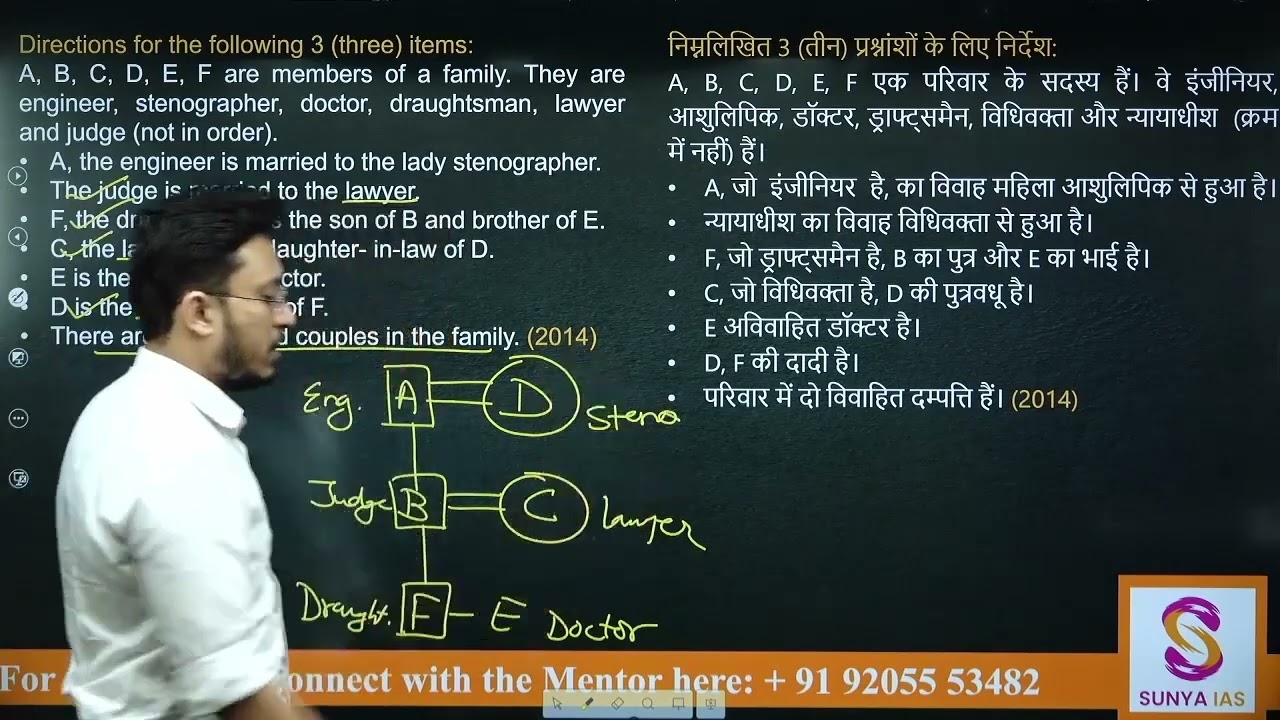 Directions for the following 3 (three) items:
A, B, C, D, E, F are members of a family. They are
engineer, stenographer, doctor, draughtsman, lawyer
and judge (not in order).
• A, the engineer is married to the lady stenographer.
• The judge is married to the lawyer.
• F, the the son of B and brother of E.
• C, the daughter- in-law of D.
• E is the
• D is the of F.
• There couples in the family. (2014)
निम्नलिखित 3 (तीन) प्रश्नांशों के लिए निर्देश:
A, B, C, D, E, F एक परिवार के सदस्य हैं। वे इंजीनियर,
आशुलिपिक, डॉक्टर, ड्राफ्ट्समैन, विधिवक्ता और न्यायाधीश (क्रम
में नहीं) हैं।
• A, जो इंजीनियर है, का विवाह महिला आशुलिपिक से हुआ है।
• न्यायाधीश का विवाह विधिवक्ता से हुआ है।
• F, जो ड्राफ्ट्समैन है, B का पुत्र और E का भाई है।
• C, जो विधिवक्ता है, D की पुत्रवधू है।
• E अविवाहित डॉक्टर है।
• D, F की दादी है।
• परिवार में दो विवाहित दम्पत्ति हैं। (2014)
Eng. A D Steno
Judge B C Lawyer
Draught. F - E Doctor
For connect with the Mentor here: + 91 92055 53482
SUNYA IAS